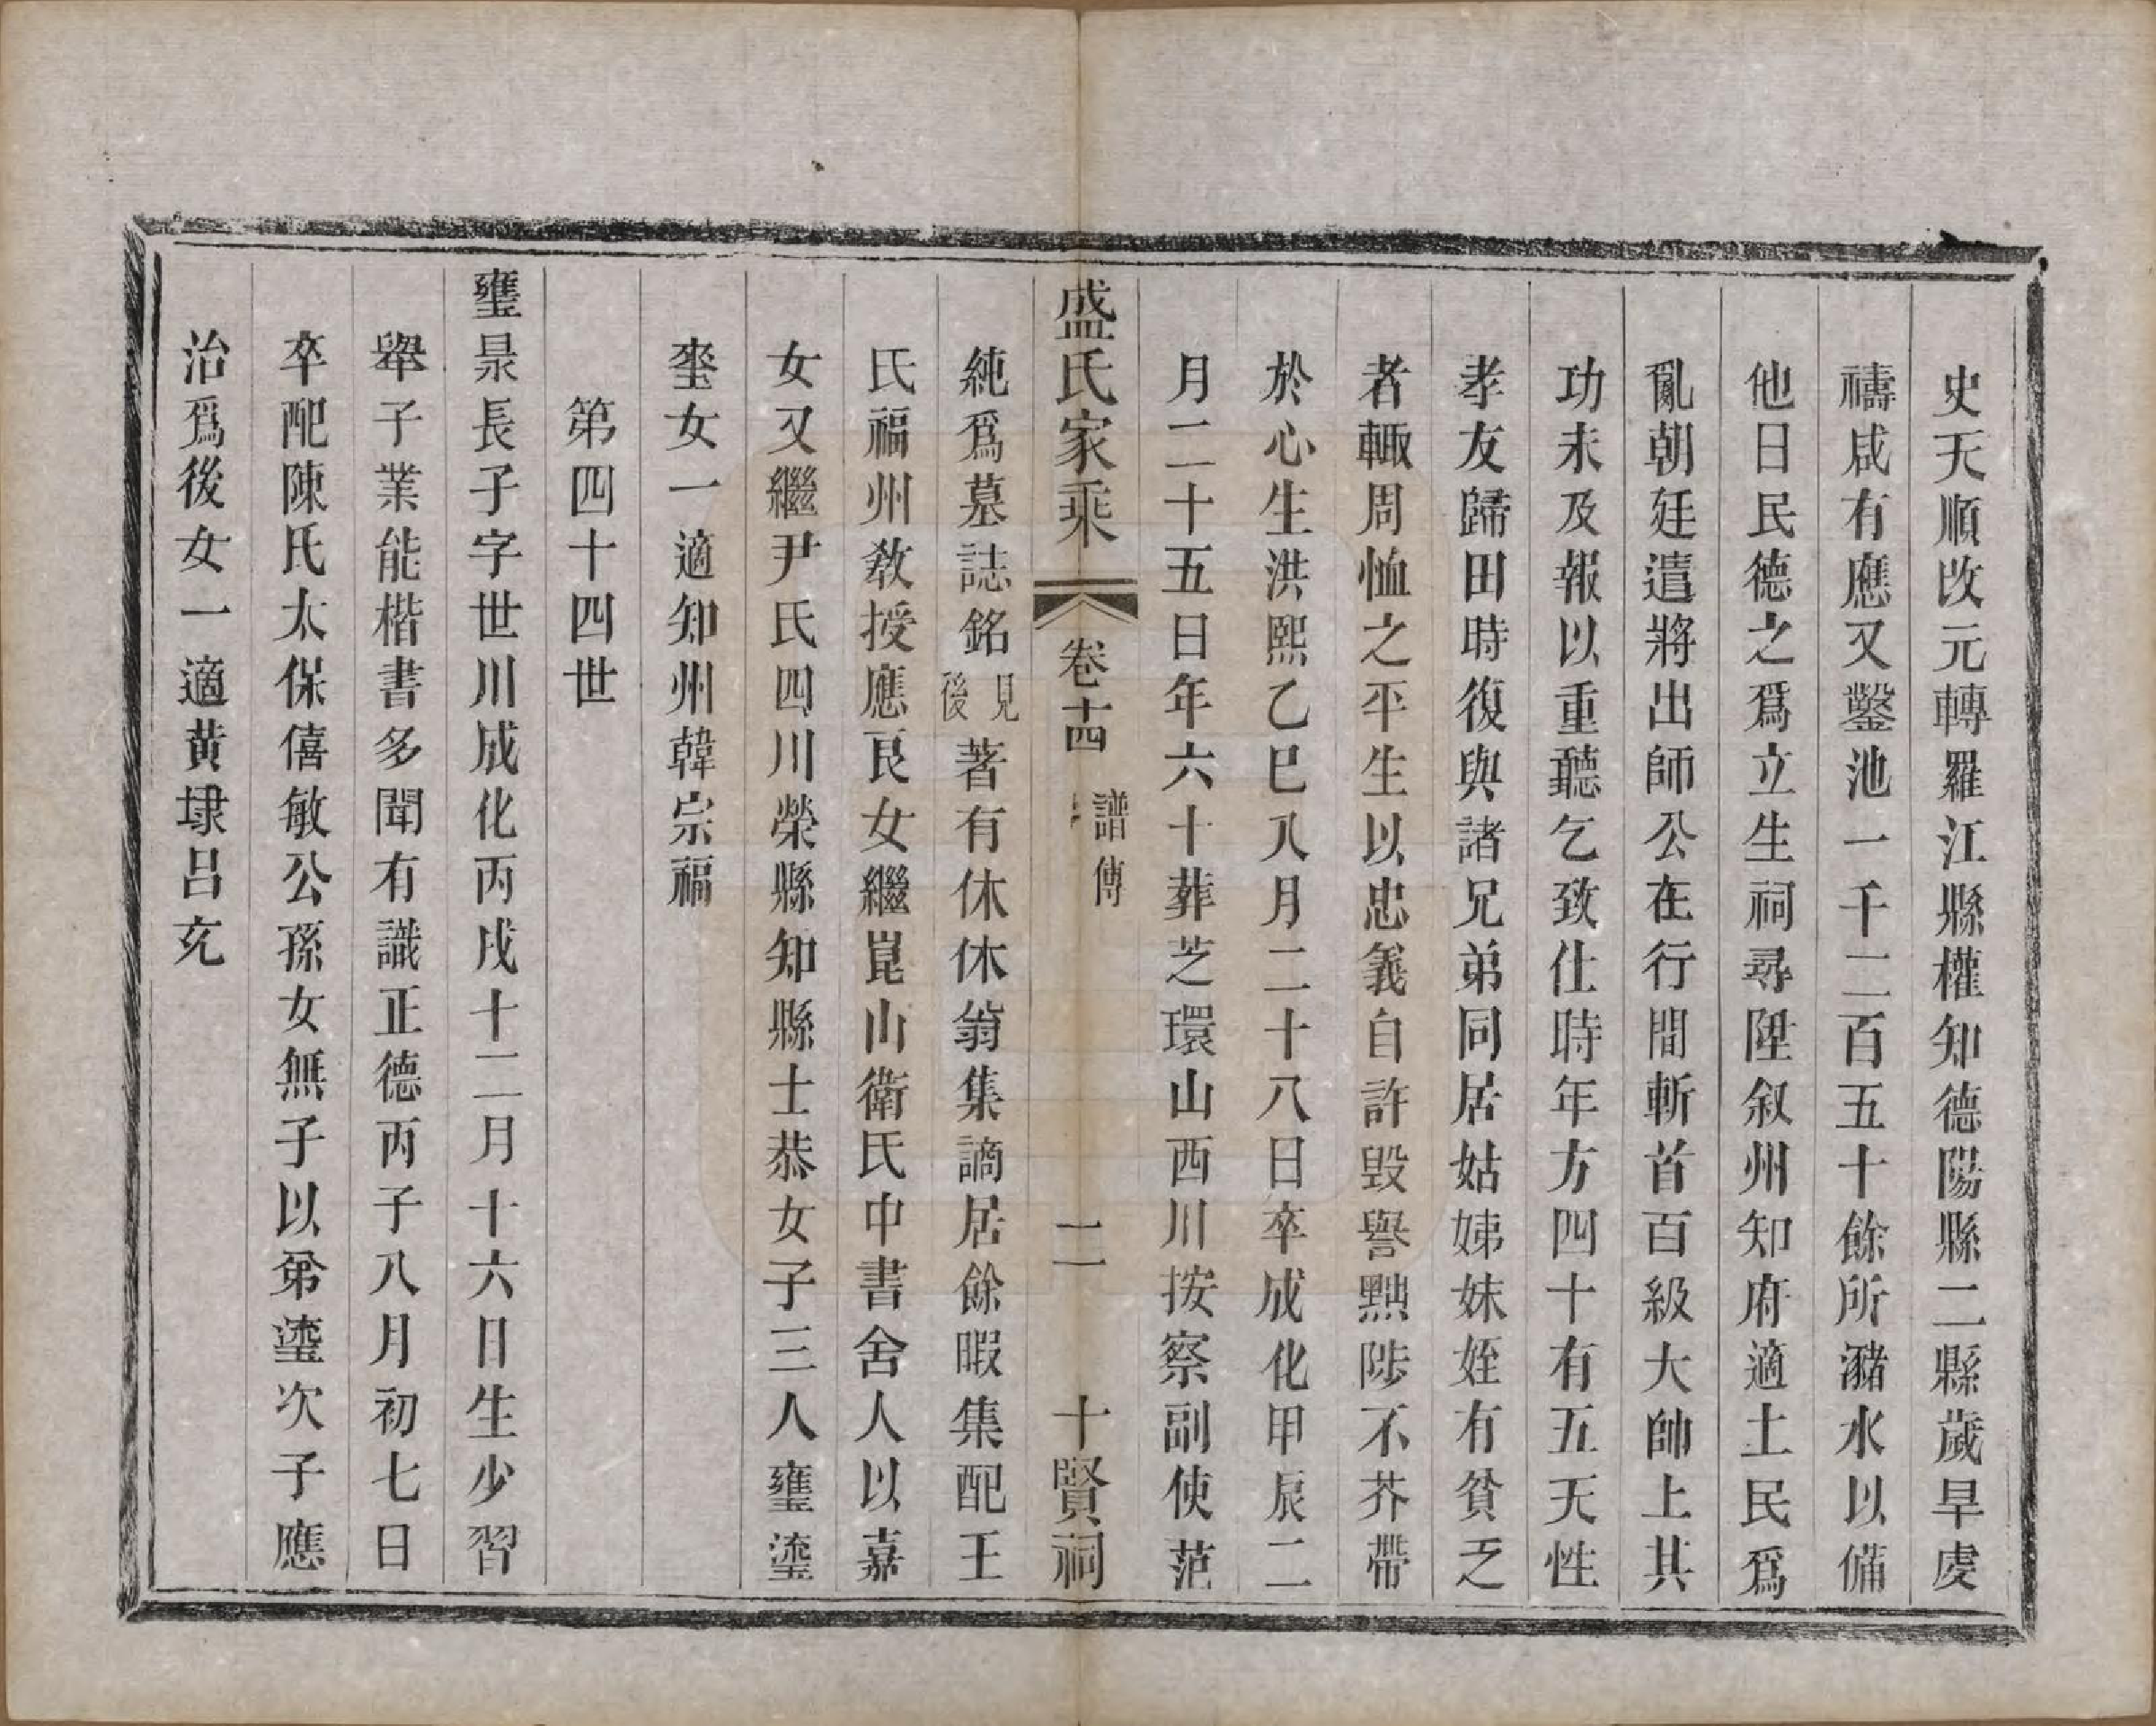 史天順改元轉羅江縣權知德陽縣二縣歲旱虔
禱咸有應又鑿池一千二百五十餘所瀦水以備
他日民德之爲立生祠尋陞叙州知府適土民爲
亂朝廷遣將出師公在行間斬首百級大帥上其
功未及報以重聽乞致仕時年方四十有五天性
孝友歸田時復與諸兄弟同居姑娣妹姪有貧乏
者輙周恤之平生以忠義自許毀譽黜陟不芥帶
於心生洪熙乙巳八月二十八日卒成化甲辰二
月二十五日年六十葬芝環山西川按察副使范
盛氏家乘 卷十四 譜傳 二 十賢祠
純爲墓誌銘見後著有休休翁集謫居餘暇集配王
氏福州教授應良女繼崑山衛氏中書舍人以嘉
女又繼尹氏四川榮縣知縣士恭女子三人壅瑬
堥女一適知州韓宗福
第四十四世
壅杲長子字世川成化丙戌十二月十六日生少習
舉子業能楷書多聞有識正德丙子八月初七日
卒配陳氏太保僖敏公孫女無子以弟瑬次子應
治爲後女一適黄埭呂充